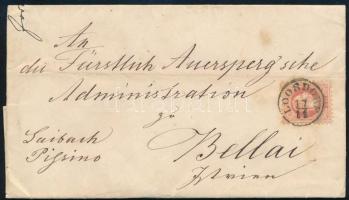 An
die Fürstlich Auersperg'sche
Administration
zu
Bellai
Istrien
Laibach
Pisino
LOOSDO
17
11